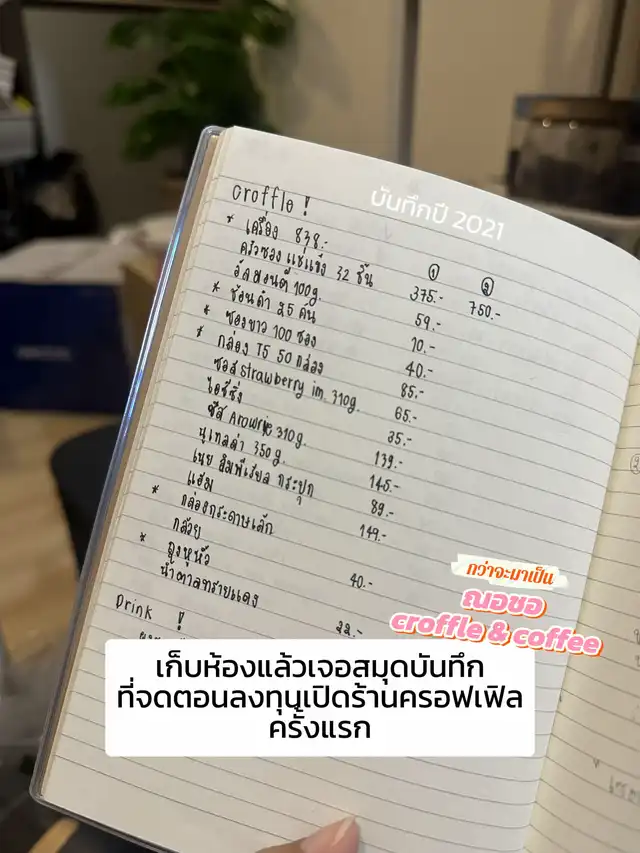 บันทึกปี 2021
croffle !
* เครื่อง 838.-
① ②
ครัวซอง แช่แข็ง 32 ชิ้น 375.- 750.-
อัลมอนด์ 100g. 59.-
* ช้อนดำ 25 คัน 10.-
* ซองขาว 100 ซอง 40.-
* กล่อง T5 50 กล่อง 85.-
ซอส strawberry im. 310g. 65.-
ไอซ์ซิ่ง 35.-
ซีส Arowrie 310g. 139.-
นูเทลล่า 350 g. 145.-
เนย อิมพีเรียล กระปุก 89.-
แฮม 149.-
* กล่องกระดาษเล็ก
กล้วย 40.-
* ถุงหูหิ้ว
น้ำตาลทรายแดง 22.-
Drink !
กว่าจะมาเป็น
ณอชอ
croffle & coffee
เก็บห้องแล้วเจอสมุดบันทึก
ที่จดตอนลงทุนเปิดร้านครอฟเฟิล
ครั้งแรก